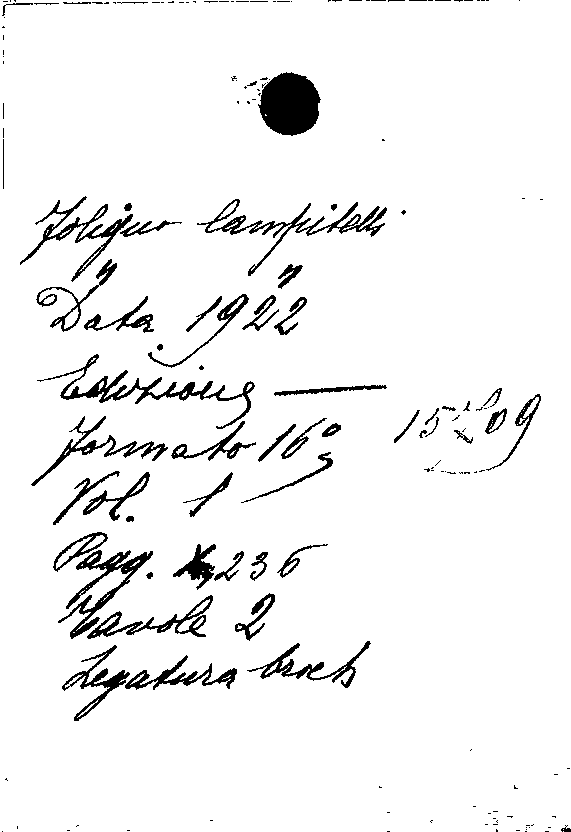 Foligno Campitelli
" "
Data. 1922
Edizione —
Formato 16°
15 09
Vol. 1
Pagg. 236
Tavole 2
Legatura broch